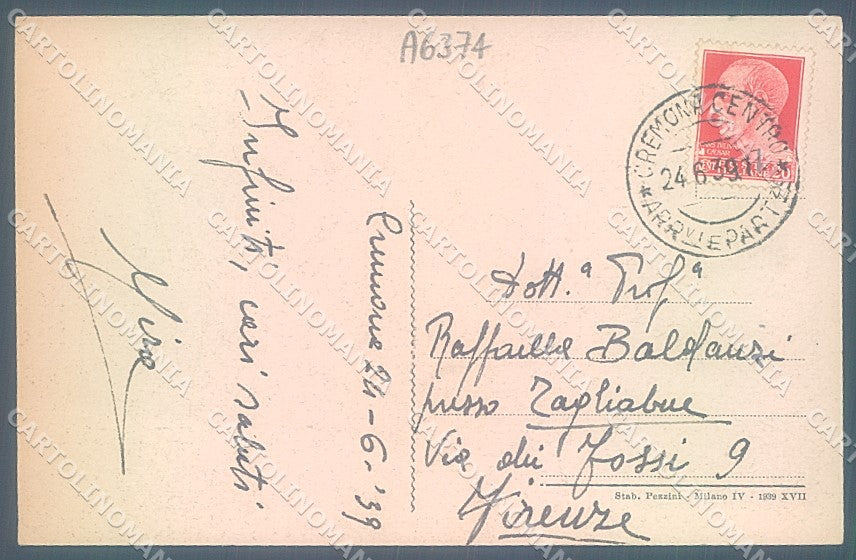 A6374
CREMONA CENTRO
24.6.39.17
* ARR. VI E PARTZE *
Cremona 24-6-'39
Infiniti, cari saluti
Dott.ª Prof.ª
Raffaella Baldanzi
presso Tagliabue
Via dei Fossi 9
Firenze
Stab. Pezzini - Milano IV - 1939 XVII
CARTOLINOMANIA